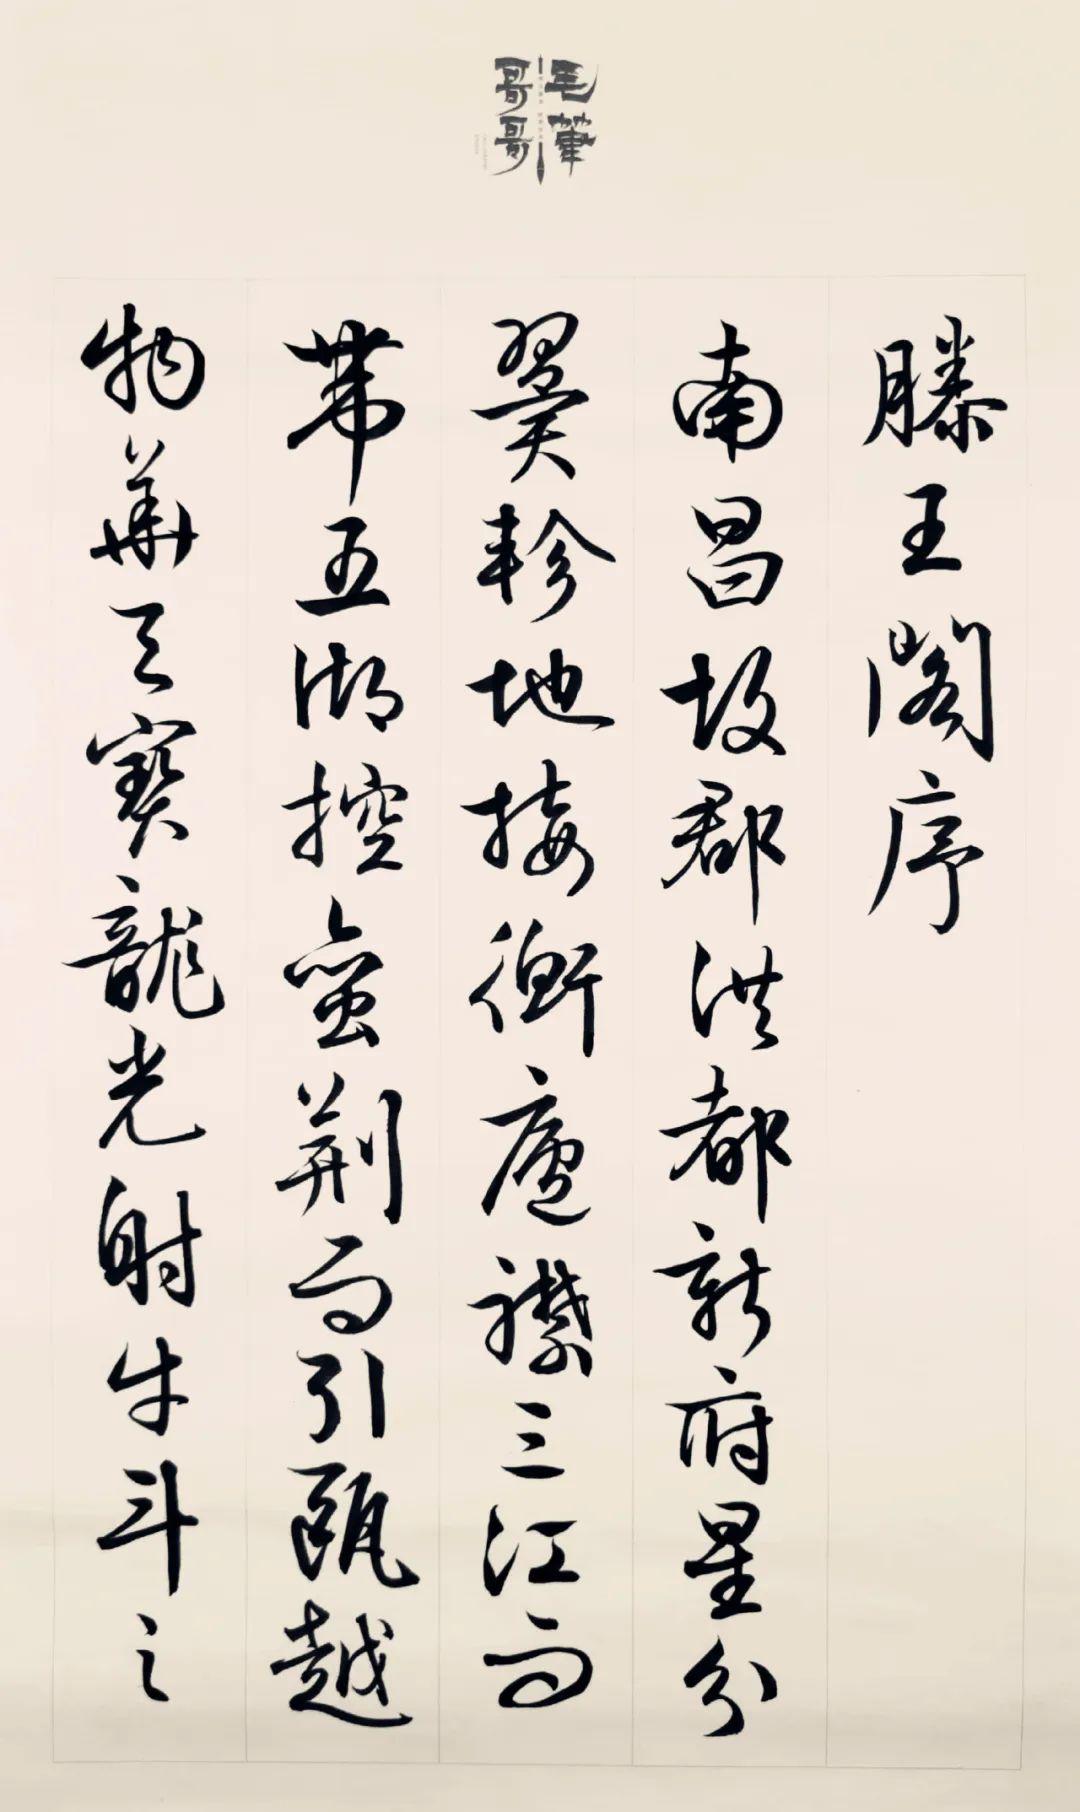 毛筆
哥哥
滕王閣序
南昌故郡洪都新府星分
翼軫地接衡廬襟三江而
帶五湖控蠻荆而引甌越
物華天寶龍光射牛斗之